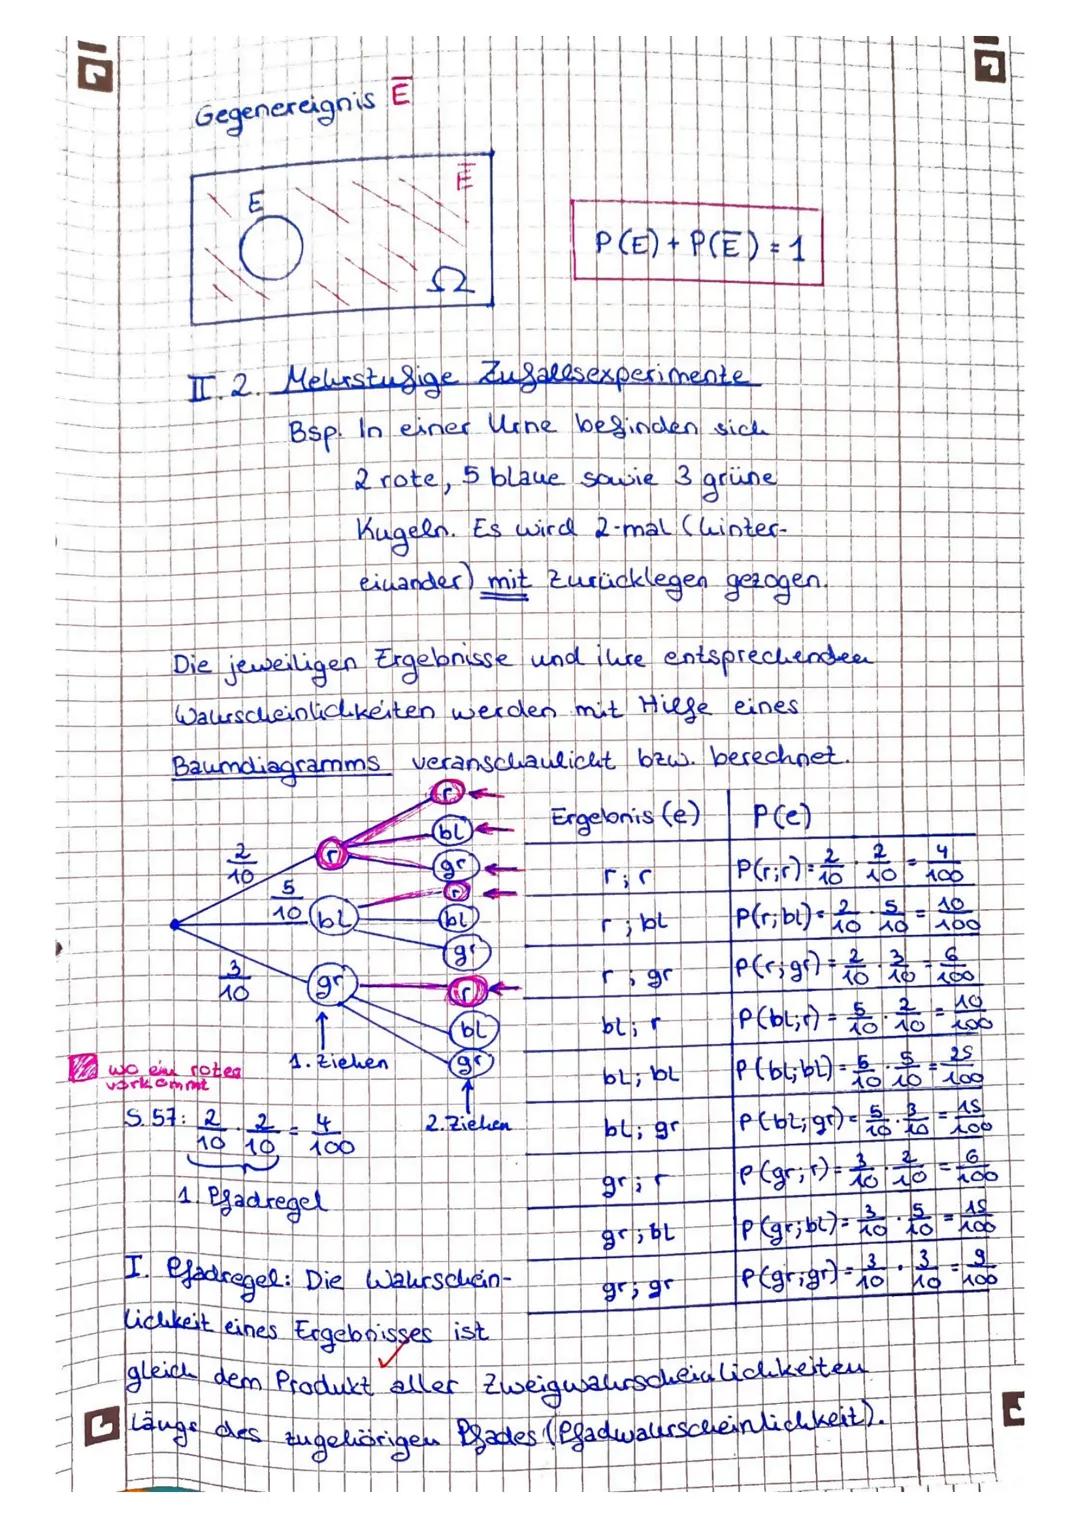 Gegenereignis E̅
E
E̅
Ω
P(E) + P(E̅) = 1
II. 2. Mehrstufige Zufallsexperimente
Bsp. In einer Urne befinden sich
2 rote, 5 blaue sowie 3 grüne
Kugeln. Es wird 2-mal (hinter-
einander) mit Zurücklegen gezogen.
Die jeweiligen Ergebnisse und ihre entsprechenden
Wahrscheinlichkeiten werden mit Hilfe eines
Baumdiagramms veranschaulicht bzw. berechnet.
2/10 r
r
bl
gr
5/10 bl
r
bl
gr
3/10 gr
r
bl
gr
1. Ziehen
2. Ziehen
wo ein rotes
vorkommt
S. 57: 2/10 · 2/10 = 4/100
1. Pfadregel
Ergebnis (e) P(e)
r; r P(r;r) = 2/10 · 2/10 = 4/100
r; bl P(r;bl) = 2/10 · 5/10 = 10/100
r; gr P(r;gr) = 2/10 · 3/10 = 6/100
bl; r P(bl;r) = 5/10 · 2/10 = 10/100
bl; bl P(bl;bl) = 5/10 · 5/10 = 25/100
bl; gr P(bl;gr) = 5/10 · 3/10 = 15/100
gr; r P(gr;r) = 3/10 · 2/10 = 6/100
gr; bl P(gr;bl) = 3/10 · 5/10 = 15/100
gr; gr P(gr;gr) = 3/10 · 3/10 = 9/100
I. Pfadregel: Die Wahrschein-
lichkeit eines Ergebnisses ist
gleich dem Produkt aller Zweigwahrscheinlichkeiten
längs des zugehörigen Pfades (Pfadwahrscheinlichkeit).